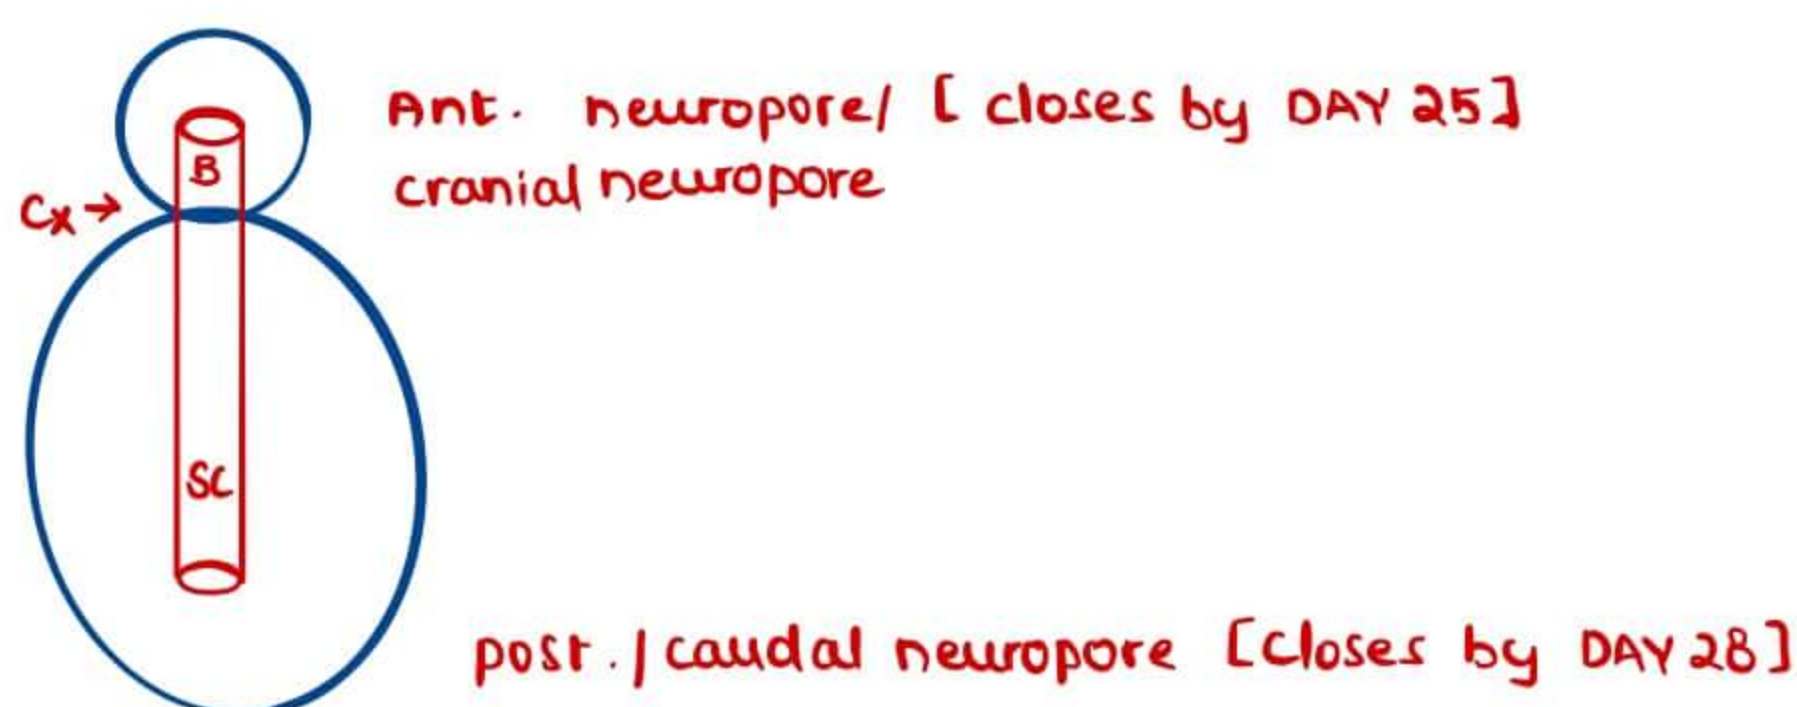 Ant. neuropore/ [ closes by DAY 25]
cranial neuropore
B
Cx →
SC
post. / caudal neuropore [closes by DAY 28]